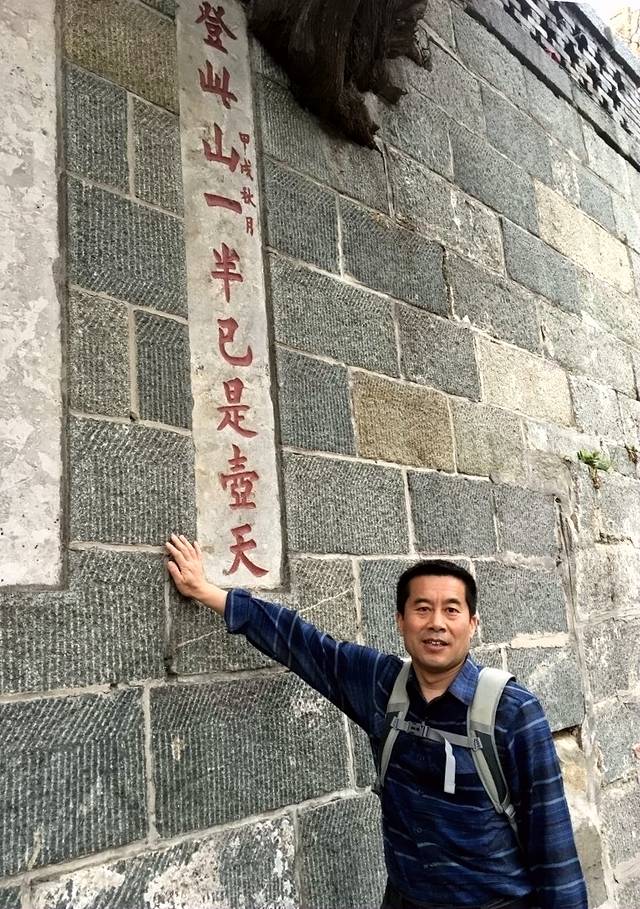 甲戌秋月
登此山一半已是壺天